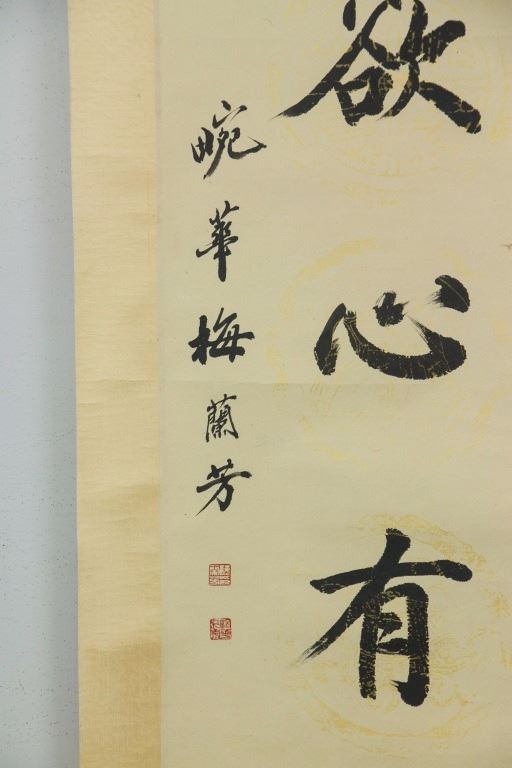 欲心有
畹華梅蘭芳